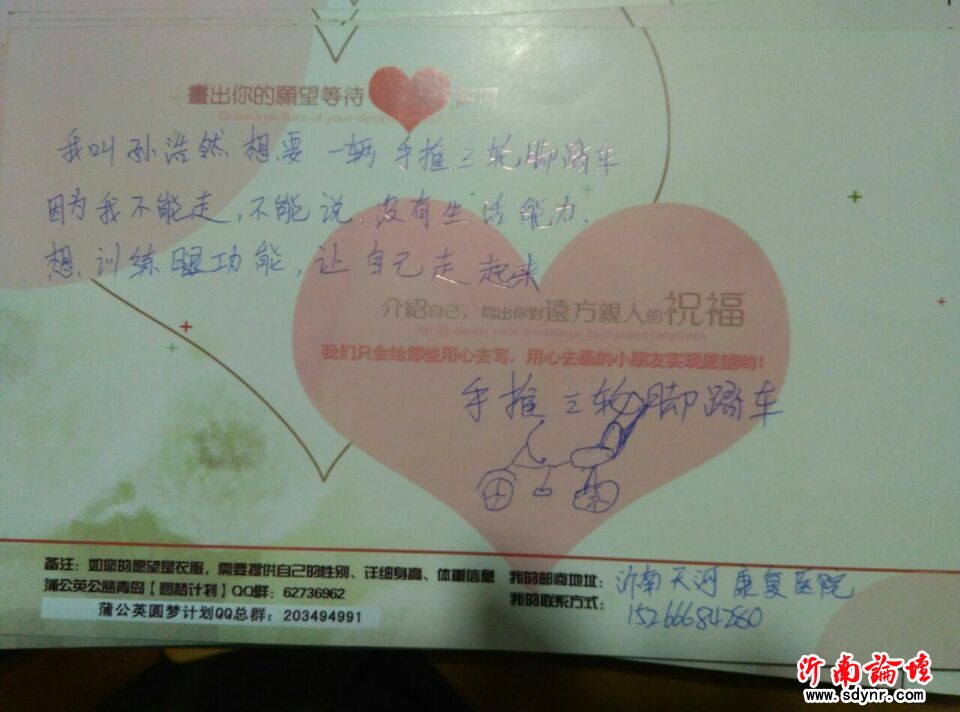 畫出你的願望等待
Draw a picture of your desire
我叫孙浩然想要一辆手推三轮脚踏车
因为我不能走,不能说,没有生活能力.
想训练腿功能,让自己走起来
介紹自己,寫出你對遠方親人的祝福
Write down your blessings to distant relatives
我们只会给那些用心去写,用心去画的小朋友实现愿望哟!
手推三轮脚踏车
备注:如您的愿望是衣服,需要提供自己的性别、详细身高、体重信息
蒲公英公益青岛【圆梦计划】QQ群:62736962
蒲公英圆梦计划QQ总群:203494991
我的邮寄地址:沂南天河康复医院
我的联系方式:15266684280
沂南論壇
www.sdynr.com